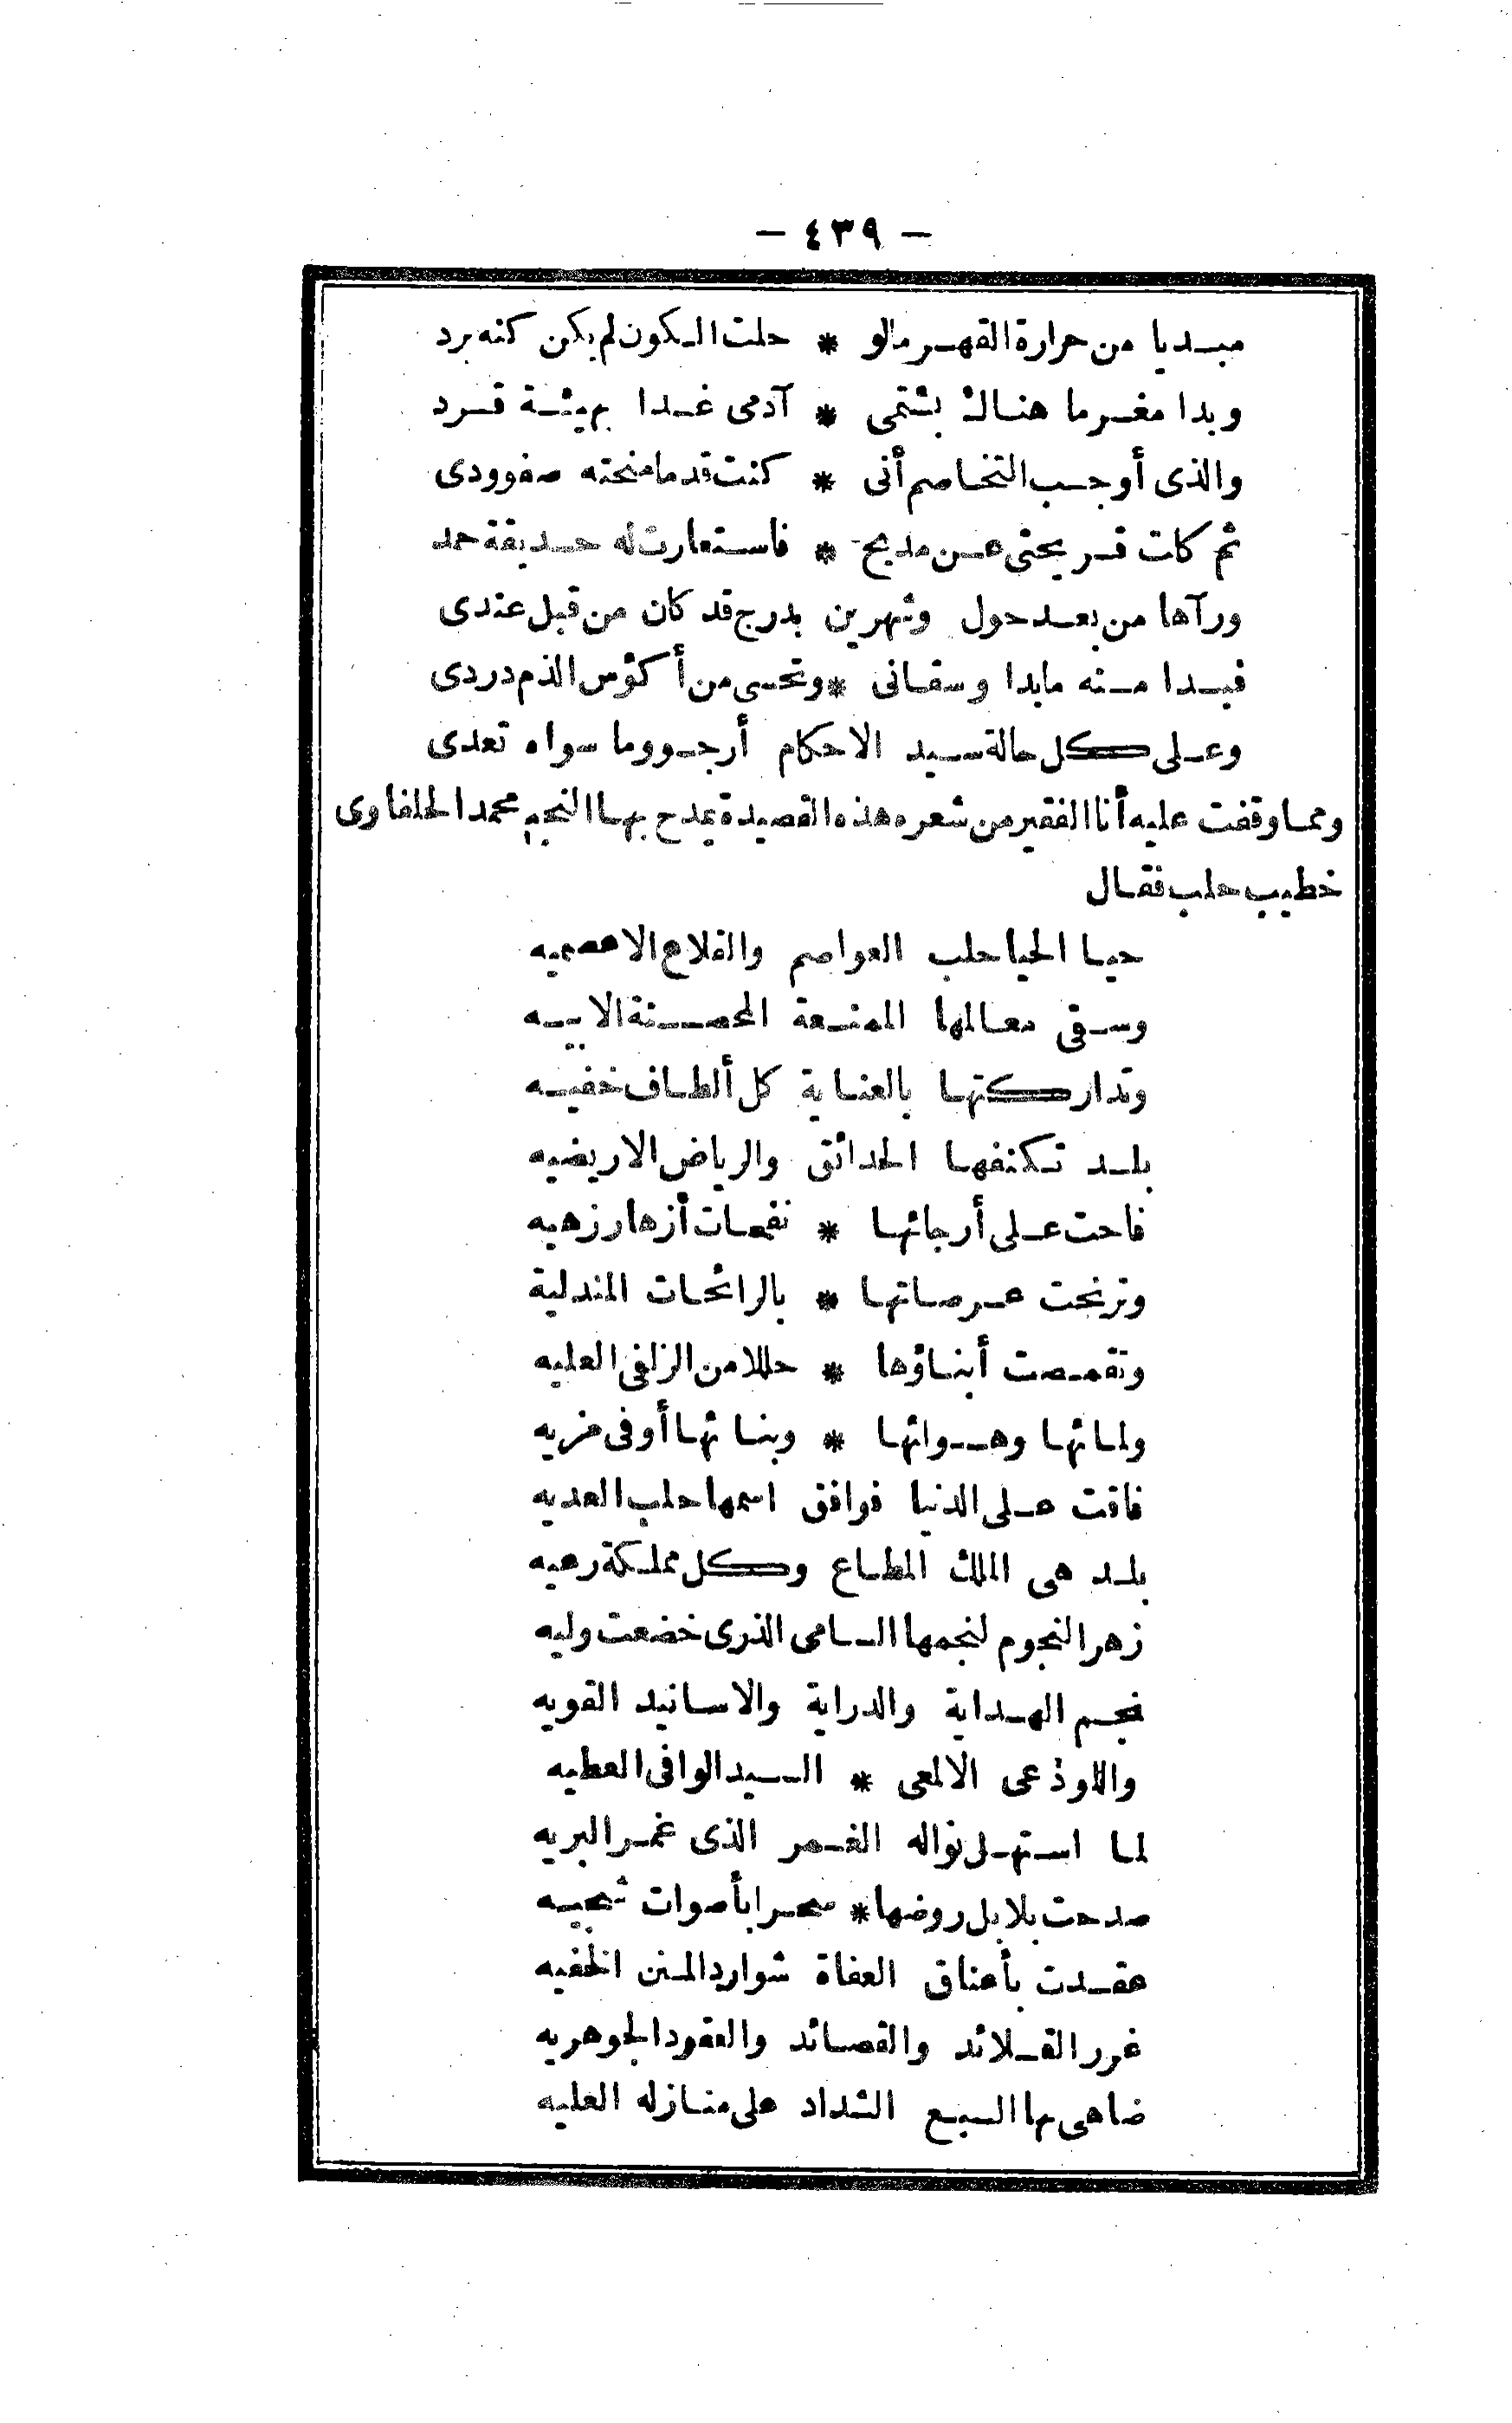 — ٤٣٩ —
مبديا من حرارة القهر مالو * حلت الكون لم يكن كنه برد
وبدا مغرما هناك بشتمى * آدمى غدا بهيئة قرد
والذى أوجب التخاصم أنى * كنت قدما منحته صفوودى
ثم كات قريحتى عن مديح * فاستعارت له حديقة حمد
ورآها من بعد حول وشهرين بدرج قد كان من قبل عندى
فبدا منه مابدا وسقانى * وتحسى من أكؤس الذم دردى
وعلى كل حالة سيد الاحكام أرجو وما سواه تعدى
ومما وقفت عليه أنا الفقير من شعره هذه القصيدة يمدح بها النجم محمد الحلفاوى
خطيب حلب فقال
حيا الحيا حلب العواصم والقلاع الاعصميه
وسقى معالمها الممنعة المحصنة الابيه
وتداركتها بالعناية كل ألطاف خفيه
بلد تكنفها الحدائق والرياض الاريضيه
فاحت على أرجائها * نفحات أزهار زهيه
وترنحت عرصاتها * بالرائحات المندلية
وتقمصت أبناؤها * حللا من الزلفى العليه
ولمائها وهوائها * وبنائها أوفى مزيه
فاقت على الدنيا فوافق اسمها حلب العديه
بلد هى الملك المطاع وكل مملكة رعيه
زهر النجوم لنجمها السامى الذرى خضعت وليه
نجم الهداية والدراية والاسانيد القويه
واللوذعى الالمعى * السيد الوافى العطيه
لما استهل نواله الغمر الذى غمر البريه
صدحت بلابل روضها * سحرا بأصوات شجيه
عقدت بأعناق العفاة شوارد المنن الخفيه
غرر القلائد والقصائد والعقود الجوهريه
ضاهى بها السبع الشداد على منازله العليه